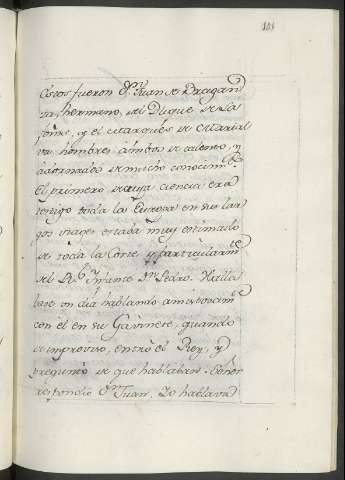 101
Estos fueron Dn. Juan de Bragan
za, hermano, del Duque de La
fões, y el Marqués de Marial
va, hombres ambos de talento, y
adornados de mucho conocimto.
El primero de cuya ciencia era
testigo toda la Europa en sus lar
gos viages estaba muy estimado
de toda la Corte, y particularmte.
del Infante Dn. Pedro. Halla
base un dia hablando amistosamte.
con él en su Gavinete, quando
de improviso, entró el Rey, y
preguntó de que hablaban. Señor
respondio Dn. Juan, Yo hablava